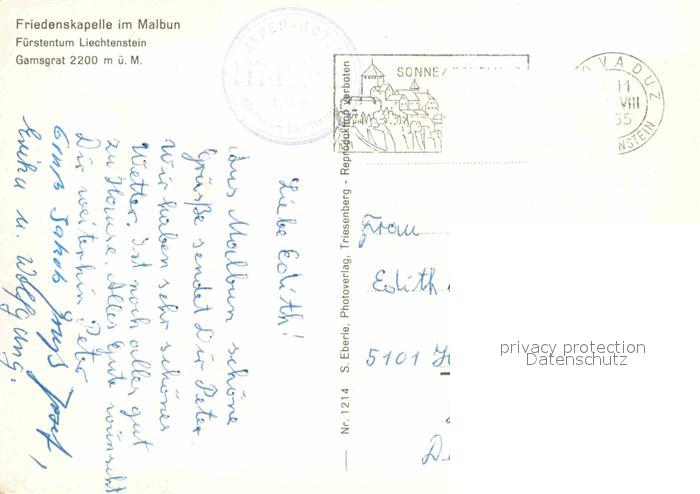 Friedenskapelle im Malbun
Fürstentum Liechtenstein
Gamsgrat 2200 m ü. M.
ALPEN-HOT
SONNE
VADUZ
11
VIII
65
NSTEIN
Liebe Edith!
Aus Malbun schöne
Grüße sendet Dir Peter.
Wir haben sehr schönes
Wetter. Ist noch alles gut
zu Hause. Alles Gute wünscht
Dir weiterhin Peter
Gruß Jakob Gruß Josef,
Erika u. Wolfgang.
Nr. 1214 S. Eberle, Photoverlag, Triesenberg - Reproduktion verboten
Frau
Edith
5101
privacy protection
Datenschutz